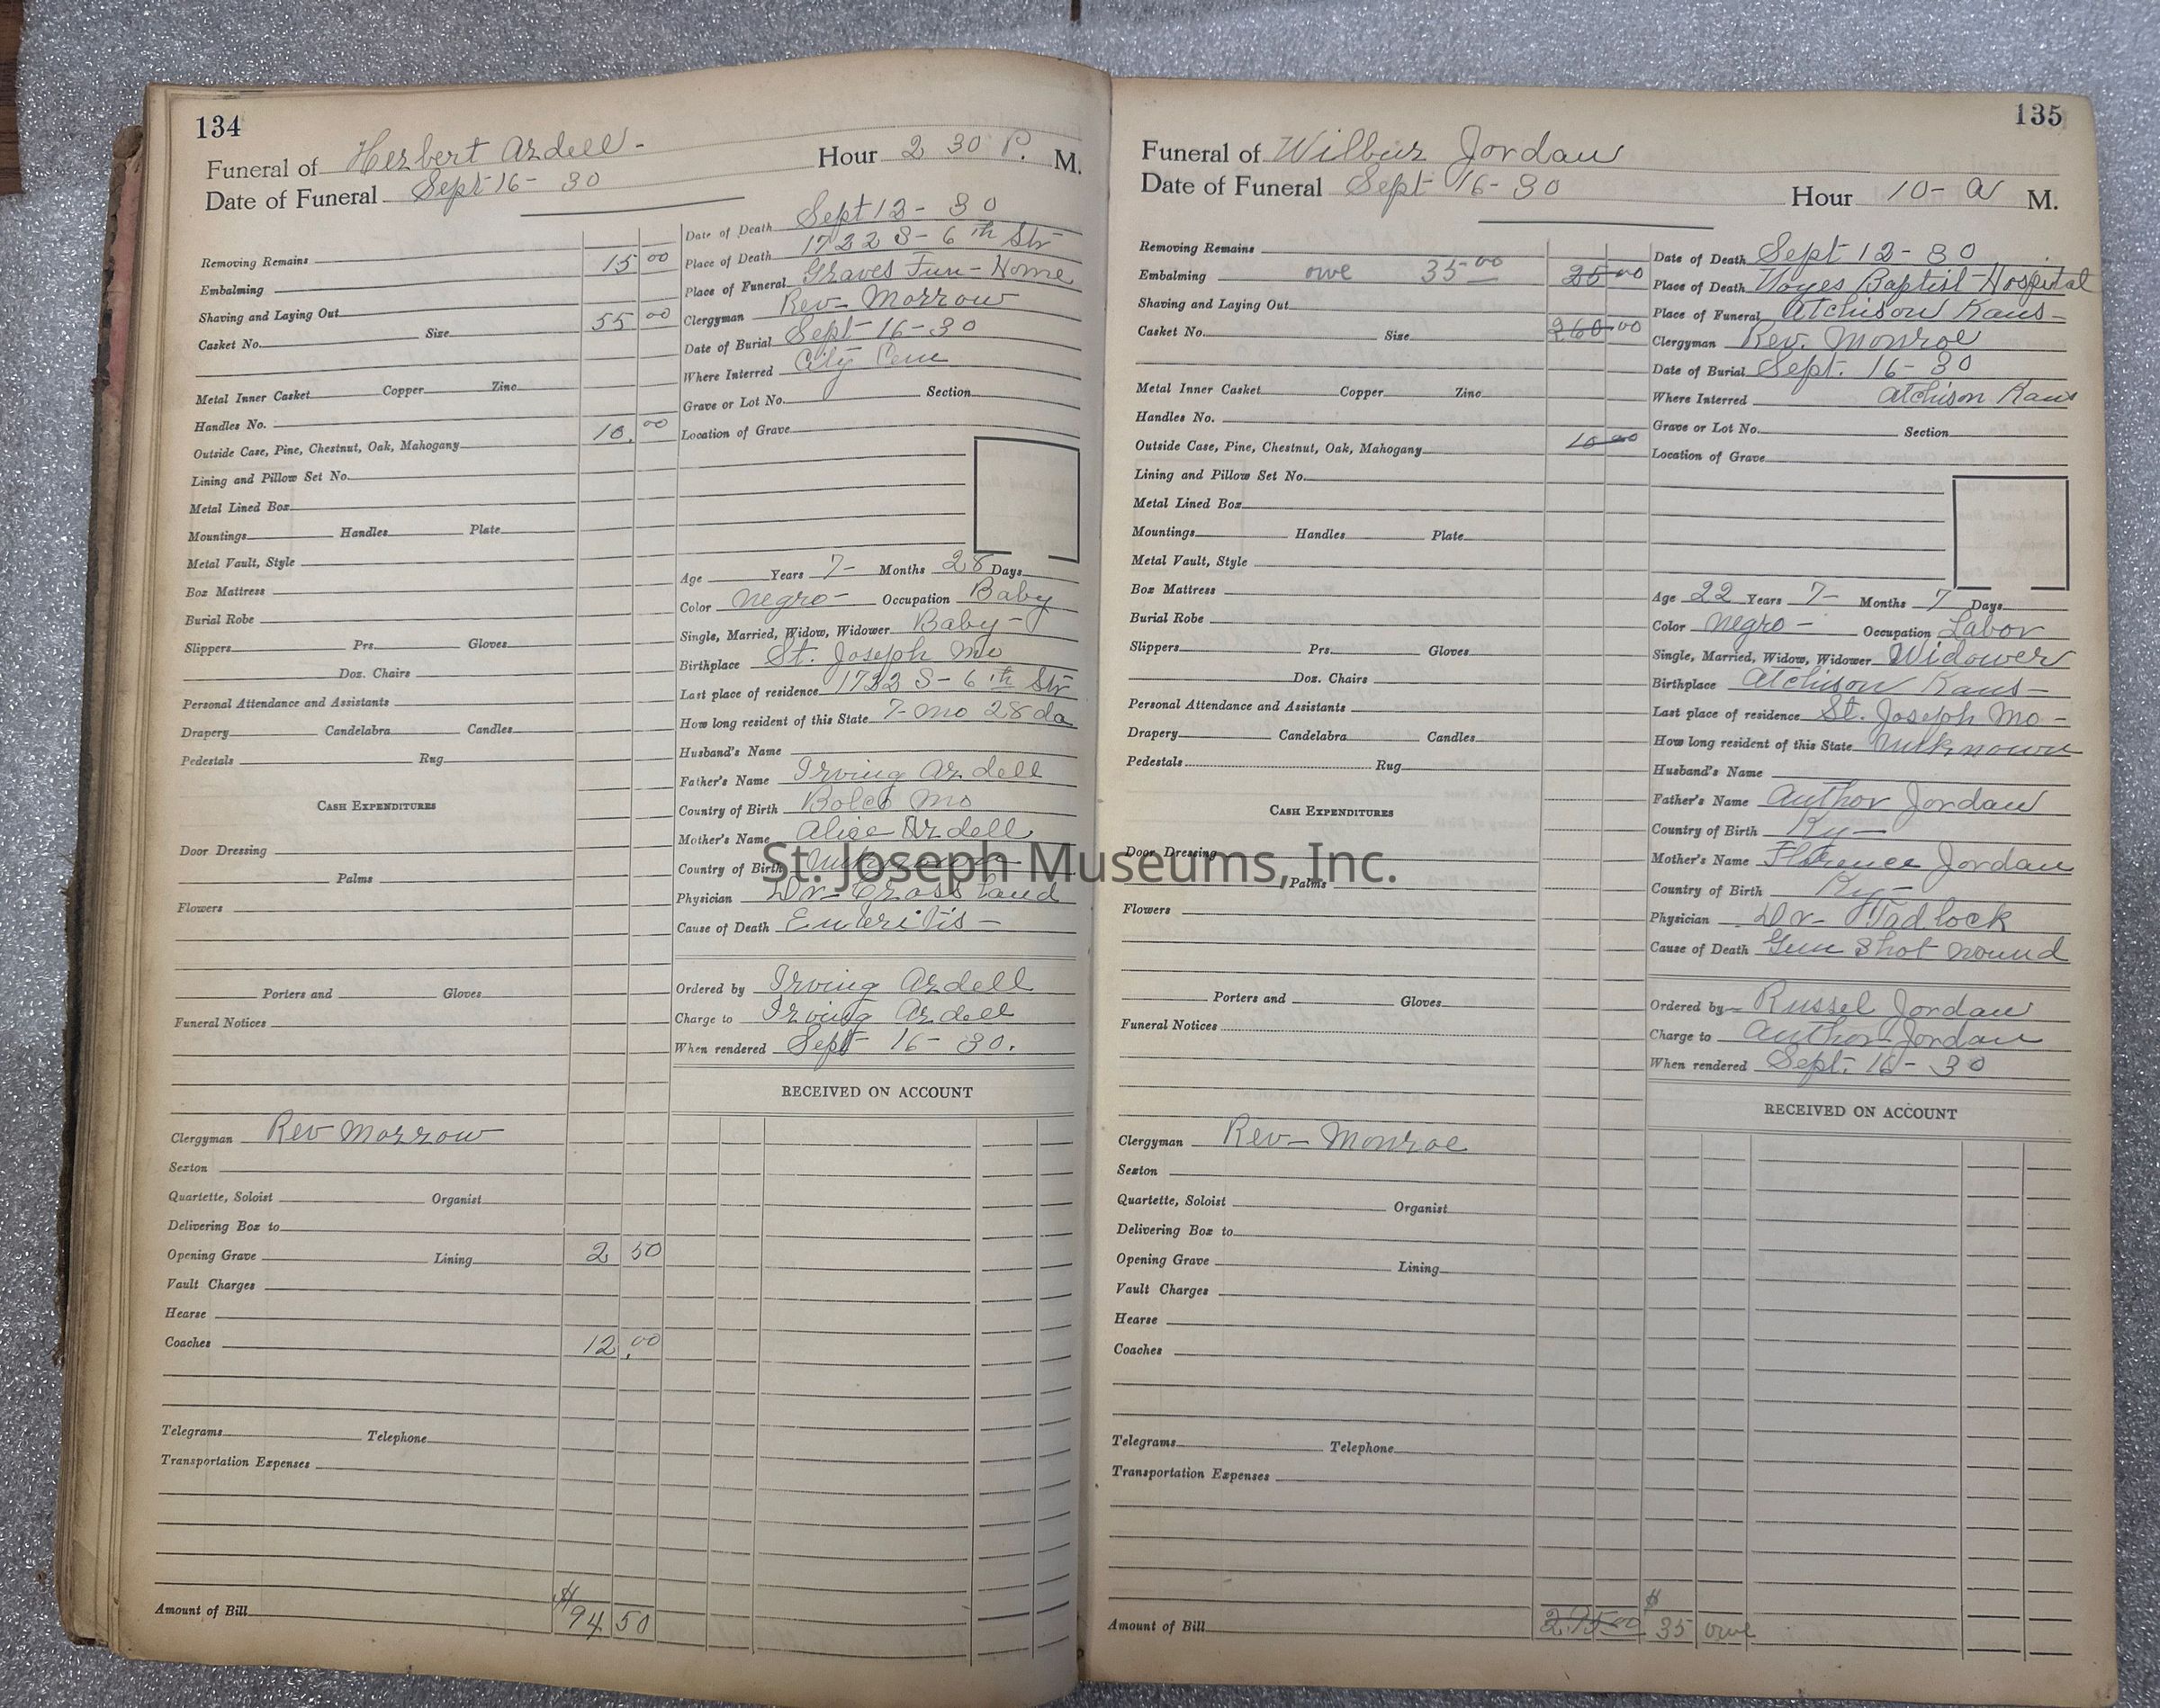 134
Funeral of Herbert Ardell - Hour 2 30 P. M.
Date of Funeral Sept 16 - 30
Date of Death Sept 13 - 30
Removing Remains
Place of Death 1722 S - 6th Str
Embalming 15 00
Place of Funeral Graves Fun - Home
Shaving and Laying Out
Clergyman Rev - Morrow
Casket No. Size 55 00
Date of Burial Sept - 16 - 30
Where Interred City Cem
Metal Inner Casket Copper Zinc
Grave or Lot No. Section
Handles No.
Location of Grave
Outside Case, Pine, Chestnut, Oak, Mahogany 10.00
Lining and Pillow Set No.
Metal Lined Box
Mountings Handles Plate
Metal Vault, Style
Age Years 7 - Months 28 Days
Box Mattress
Color Negro - Occupation Baby
Burial Robe
Single, Married, Widow, Widower Baby -
Slippers Prs. Gloves
Birthplace St. Joseph Mo
Doz. Chairs
Last place of residence 1722 S - 6th Str
Personal Attendance and Assistants
How long resident of this State 7 - mo 28 da
Drapery Candelabra Candles
Husband's Name
Pedestals Rug
Father's Name Irving Ardell
CASH EXPENDITURES
Country of Birth Mo
Mother's Name Alice Ardell
Door Dressing
Country of Birth
Palms
Physician Dr - Crossland
Flowers
Cause of Death Enteritis -
Porters and Gloves
Ordered by Irving Ardell
Funeral Notices
Charge to Irving Ardell
When rendered Sept 16 - 30.
RECEIVED ON ACCOUNT
Clergyman Rev Morrow
Sexton
Quartette, Soloist Organist
Delivering Box to
Opening Grave Lining 2 50
Vault Charges
Hearse
Coaches 12.00
Telegrams Telephone
Transportation Expenses
Amount of Bill $94 50
135
Funeral of Wilbur Jordan
Date of Funeral Sept 16 - 30 Hour 10 - a M.
Removing Remains
Date of Death Sept 12 - 30
Embalming owe 35 - 00
Place of Death Noyes Baptist Hospital
Shaving and Laying Out
Place of Funeral Atchison Kans -
Casket No. Size 260 00
Clergyman Rev. Monroe
Date of Burial Sept. 16 - 30
Metal Inner Casket Copper Zinc
Where Interred Atchison Kans
Handles No.
Grave or Lot No. Section
Outside Case, Pine, Chestnut, Oak, Mahogany 10 00
Location of Grave
Lining and Pillow Set No.
Metal Lined Box
Mountings Handles Plate
Metal Vault, Style
Box Mattress
Age 22 Years 7 - Months 7 Days
Burial Robe
Color Negro - Occupation Labor
Slippers Prs. Gloves
Single, Married, Widow, Widower Widower
Doz. Chairs
Birthplace Atchison Kans -
Personal Attendance and Assistants
Last place of residence St. Joseph Mo -
Drapery Candelabra Candles
How long resident of this State Unknown
Pedestals Rug
Husband's Name
Father's Name Author Jordan
CASH EXPENDITURES
Country of Birth Ky -
Door Dressing
Mother's Name Florence Jordan
Palms
Country of Birth Ky -
Flowers
Physician Dr - Tadlock
Cause of Death Gun Shot wound
Porters and Gloves
Ordered by Russel Jordan
Funeral Notices
Charge to Author Jordan
When rendered Sept. 16 - 30
RECEIVED ON ACCOUNT
Clergyman Rev - Monroe
Sexton
Quartette, Soloist Organist
Delivering Box to
Opening Grave Lining
Vault Charges
Hearse
Coaches
Telegrams Telephone
Transportation Expenses
Amount of Bill 295 00 $ 35 owe
St. Joseph Museums, Inc.